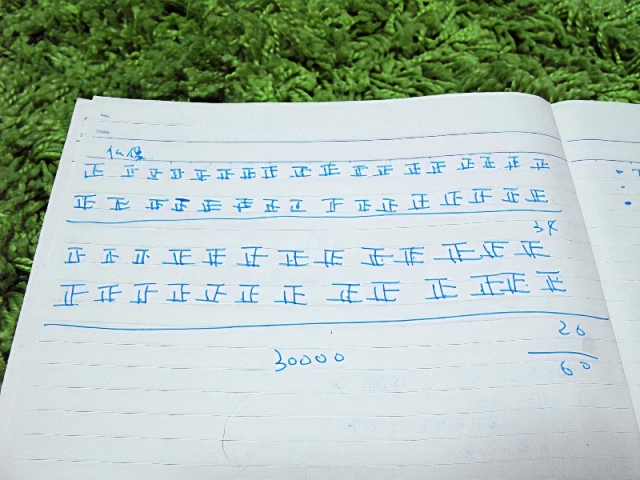 正 正 正 正 正 正 正 正 正 正 正 正 正 正 正 正 正 正
正 正 正 正 正 正 正 正 正 正 正 正 正 正 正 正
34
正 正 正 正 正 正 正 正 正 正 正 正 正
正 正 正 正 正 正 正 正 正 正 正 正 正
26
30000
60